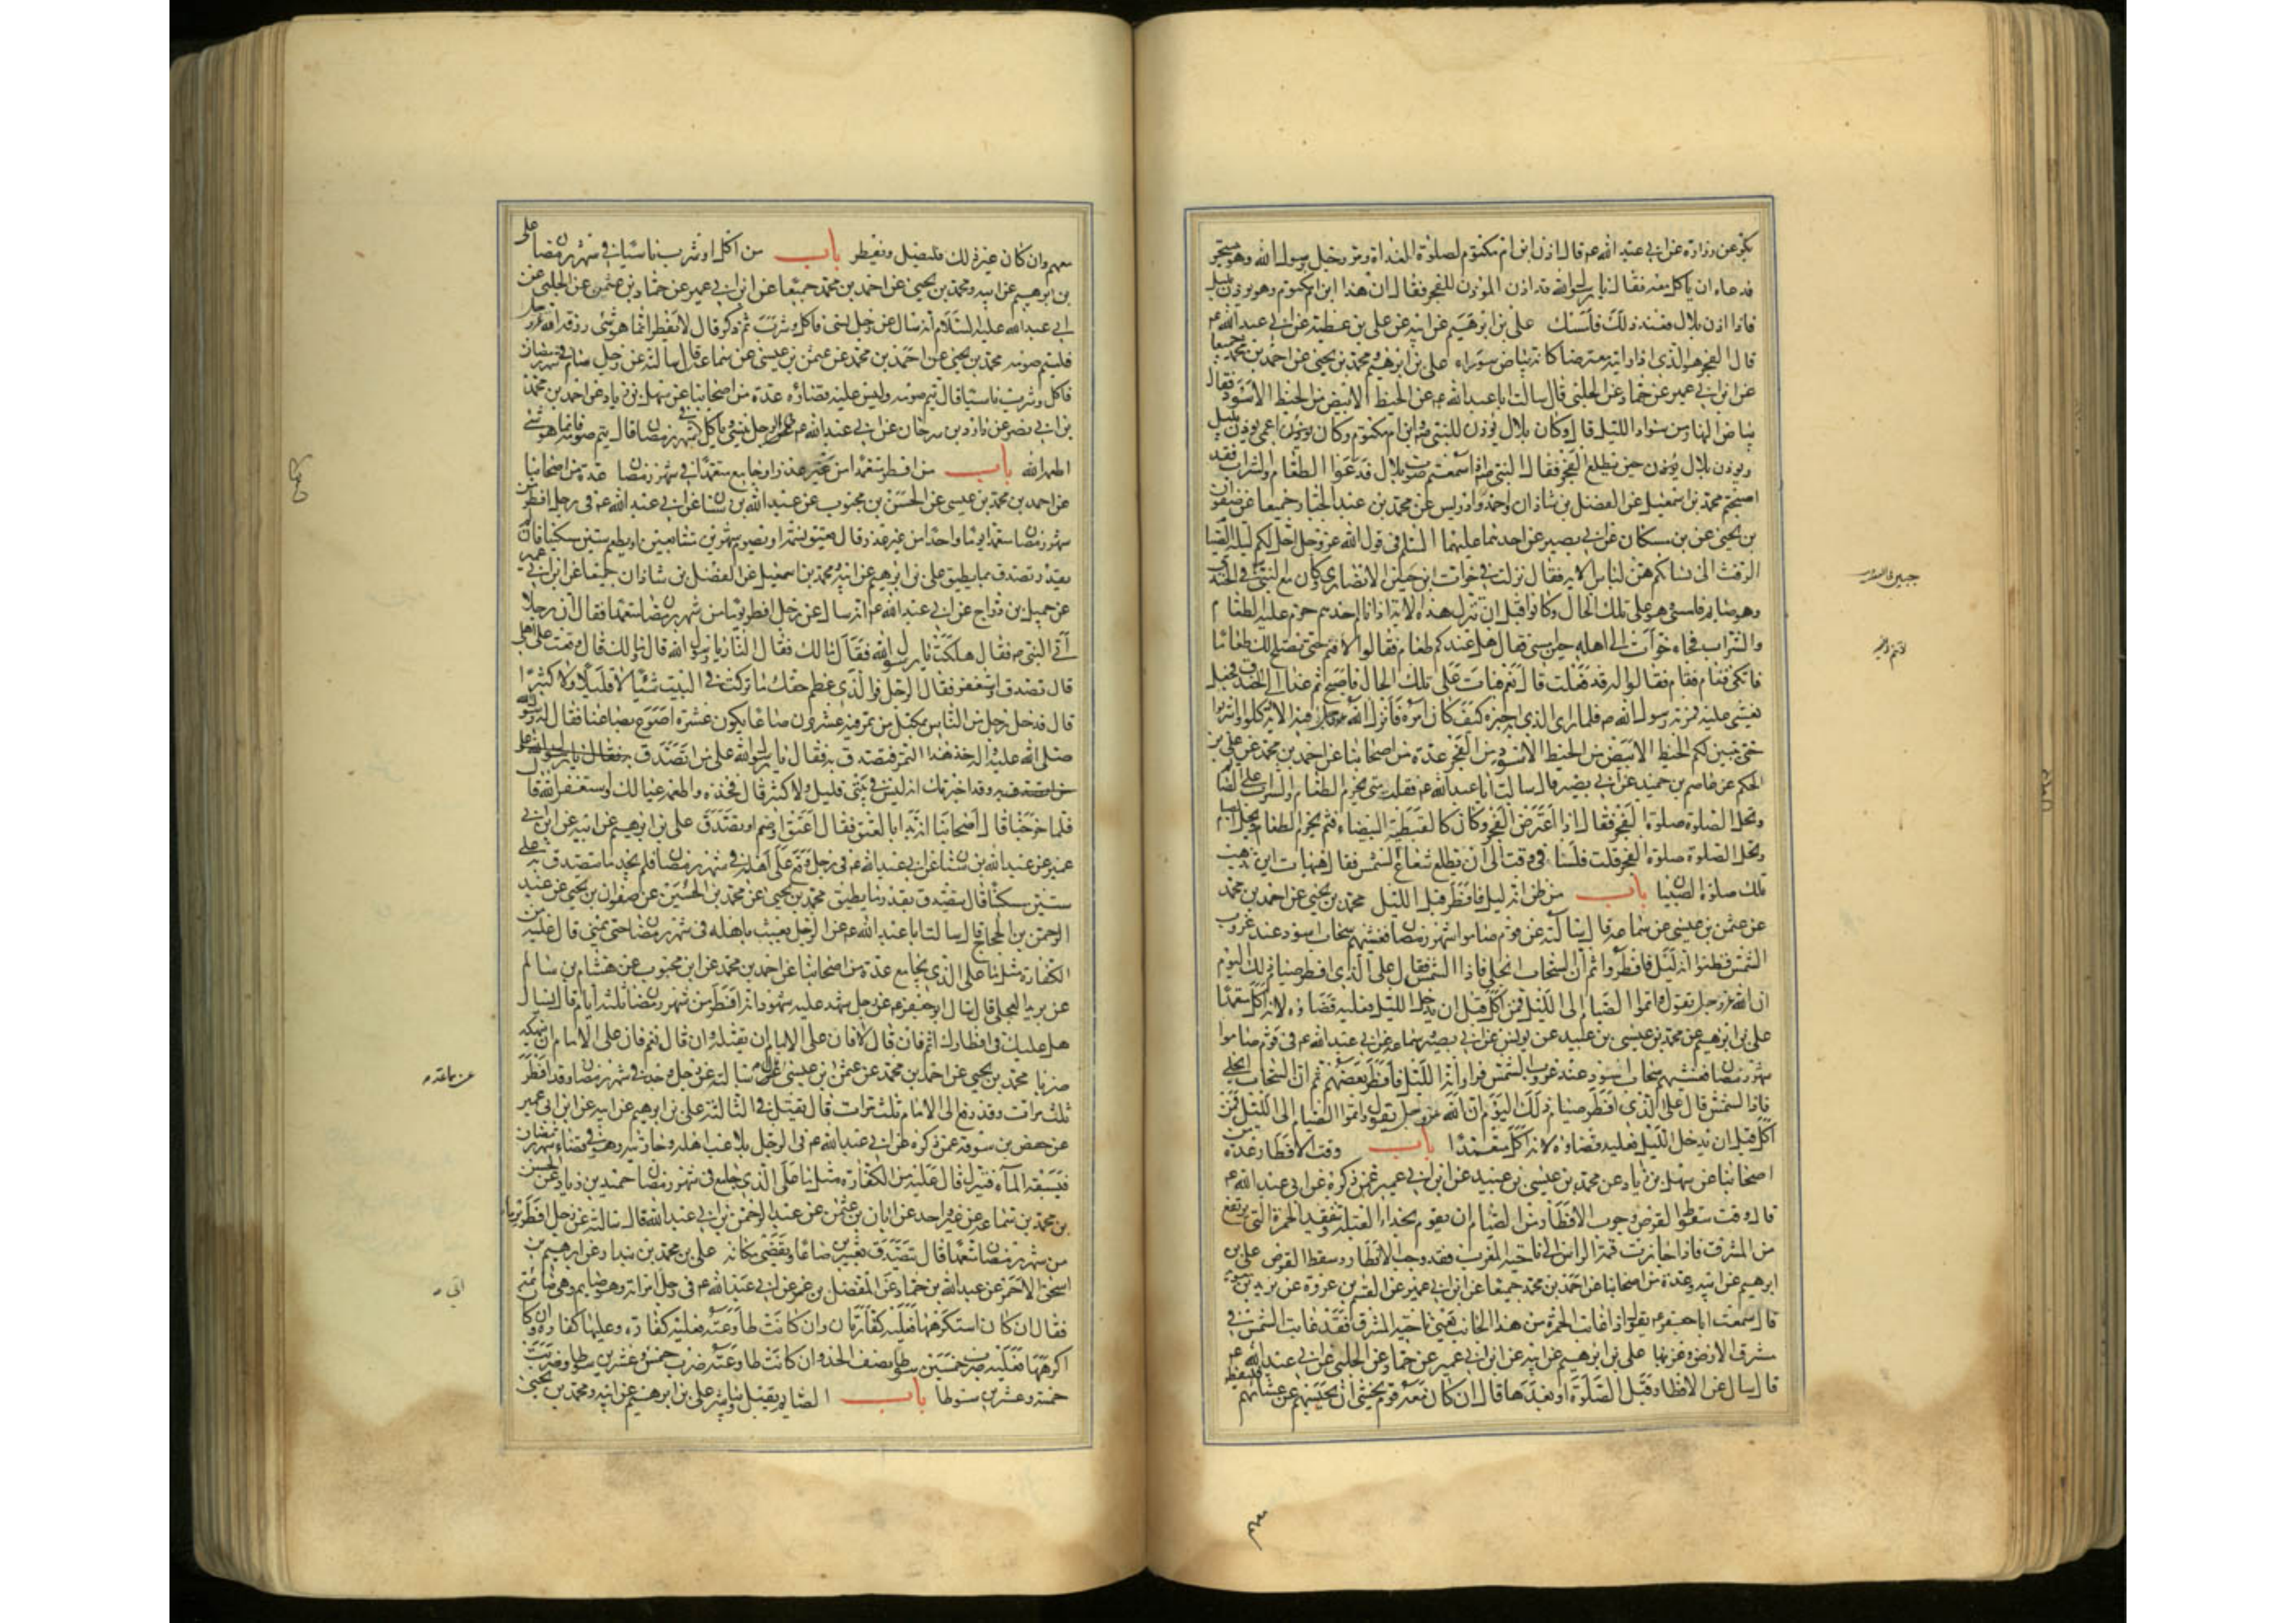 بكر عن زرارة عن ابي عبد الله ع قال اذن ابن ام مكتوم لصلوة الغداة ومر رجل برسول الله وهو يتسحر
فدعاه ان ياكل معه فقال يا رسول الله قد اذن المؤذن للفجر فقال ان هذا ابن ام مكتوم وهو يؤذن بليل
فاذا اذن بلال فعند ذلك فامسك علي بن ابرهيم عن ابيه عن علي بن عطية عن ابي عبد الله ع
قال الفجر هو الذي اذا رايته معترضا كانه بياض سوراء علي بن ابرهيم ومحمد بن يحيى عن احمد بن محمد جميعا
عن ابن ابي عمير عن حماد عن الحلبي قال سالت ابا عبد الله ع عن الخيط الابيض من الخيط الاسود فقال
بياض النهار من سواد الليل قال وكان بلال يؤذن للنبي ص وابن ام مكتوم وكان يؤذن اعمى يؤذن بليل
ويؤذن بلال حين يطلع الفجر فقال النبي ص اذا سمعتم صوت بلال فدعوا الطعام والشراب فقد
اصبحتم محمد بن اسمعيل عن الفضل بن شاذان واحمد بن ادريس عن محمد بن عبد الجبار جميعا عن صفوان
بن يحيى عن بن مسكان عن ابي بصير عن احدهما عليهما السلم في قول الله عز وجل احل لكم ليلة الصيام
الرفث الى نسائكم هن لناس الاية فقال نزلت في خوات ابن جبير الانصاري وكان مع النبي ص في الخندق
وهو صايم فامسى وهو على تلك الحال وكانوا قبل ان تنزل هذه الاية اذا نام احدهم حرم عليه الطعام
والشراب فجاء خوات الى اهله حين امسى فقال هل عندكم طعام فقالوا لا نم حتى نصلح لك طعاما
فاتكى فنام فقالوا له قد فعلت قال نعم فبات على تلك الحال فاصبح ثم غدا الى الخندق فجعل
يغشى عليه فمر به رسول الله ص فلما راى الذي به اخبره كيف كان امره فانزل الله عز وجل فيه الاية كلوا واشربوا
حتى يتبين لكم الخيط الابيض من الخيط الاسود من الفجر عدة من اصحابنا عن احمد بن محمد عن علي بن
الحكم عن عاصم بن حميد عن ابي بصير قال سالت ابا عبد الله ع فقلت متى يحرم الطعام والشراب على الصايم
وتحل الصلوة صلوة الفجر فقال اذا اعترض الفجر وكان كالقبطية البيضاء فثم يحرم الطعام ويحل الصيام
وتحل الصلوة صلوة الفجر قلت فلسنا في وقت الى ان يطلع شعاع الشمس فقال هيهات اين تذهب
تلك صلوة الصبيان باب من ظن انه ليل فافطر قبل الليل محمد بن يحيى عن احمد بن محمد
عن عثمن بن عيسى عن سماعة قال سالته عن قوم صاموا شهر رمضان فغشيهم سحاب اسود عند غروب
الشمس فظنوا انه ليل فافطروا ثم ان السحاب انجلى فاذا الشمس فقال على الذي افطر صيام ذلك اليوم
ان الله عز وجل يقول واتموا الصيام الى الليل فمن اكل قبل ان يدخل الليل فعليه قضاؤه لانه اكل متعمدا
علي بن ابرهيم عن محمد بن عيسى بن عبيد عن يونس عن ابي بصير وسماعة عن ابي عبد الله ع في قوم صاموا
شهر رمضان فغشيهم سحاب اسود عند غروب الشمس فراوا انه الليل فافطر بعضهم ثم ان السحاب انجلى
فاذا الشمس قال على الذي افطر صيام ذلك اليوم ان الله عز وجل يقول واتموا الصيام الى الليل فمن
اكل قبل ان يدخل الليل فعليه قضاؤه لانه اكل متعمدا باب وقت الافطار عدة من
اصحابنا عن سهل بن زياد عن محمد بن عيسى بن عبيد عن ابن ابي عمير عمن ذكره عن ابي عبد الله ع
قال وقت سقوط القرص وجوب الافطار من الصيام ان يقوم بحذاء القبلة وتتفقد الحمرة التي ترتفع
من المشرق فاذا جازت قمة الراس الى ناحية المغرب فقد وجب الافطار وسقط القرص علي بن
ابرهيم عن ابيه وعدة من اصحابنا عن احمد بن محمد جميعا عن ابن ابي عمير عن القسم بن عروة عن بريد بن معوية
قال سمعت ابا جعفر ع يقول اذا غابت الحمرة من هذا الجانب يعني ناحية المشرق فقد غابت الشمس في
مشرق الارض وغربها علي بن ابرهيم عن ابيه عن ابن ابي عمير عن حماد عن الحلبي عن ابي عبد الله ع
قال سال عن الافطار قبل الصلوة او بعدها قال ان كان معه قوم يخشى ان يحبسهم عن عشائهم فليفطر
معهم وان كان غير ذلك فليصل وليفطر باب من اكل او شرب ناسيا في شهر رمضان علي
بن ابرهيم عن ابيه ومحمد بن يحيى عن احمد بن محمد جميعا عن ابن ابي عمير عن حماد بن عثمن عن الحلبي عن
ابي عبد الله عليه السلام انه سال عن رجل نسي فاكل وشرب ثم ذكر قال لا يفطر انما هو شي رزقه الله عز وجل
فليتم صومه محمد بن يحيى عن احمد بن محمد عن عثمن بن عيسى عن سماعة قال سالته عن رجل صام في شهر رمضان
فاكل وشرب ناسيا قال يتم صومه وليس عليه قضاؤه عدة من اصحابنا عن سهل بن زياد عن احمد بن محمد
بن ابي نصر عن داود بن سرحان عن ابي عبد الله ع في الرجل ينسى وياكل في شهر رمضان قال يتم صومه فانما هو شي
اطعمه الله باب من افطر متعمدا من غير عذر او جامع متعمدا في شهر رمضان عدة من اصحابنا
عن احمد بن محمد بن عيسى عن الحسن بن محبوب عن عبد الله بن سنان عن ابي عبد الله ع في رجل افطر من
شهر رمضان متعمدا يوما واحدا من غير عذر قال يعتق نسمة او يصوم شهرين متتابعين او يطعم ستين مسكينا فان لم
يقدر تصدق بما يطيق علي بن ابرهيم عن ابيه ومحمد بن اسمعيل عن الفضل بن شاذان جميعا عن ابن ابي عمير
عن جميل بن دراج عن ابي عبد الله ع انه سال عن رجل افطر يوما من شهر رمضان متعمدا فقال ان رجلا
اتى النبي ص فقال هلكت يا رسول الله فقال مالك فقال النار يا رسول الله قال ومالك قال وقعت على اهلي
قال تصدق واستغفر فقال الرجل فو الذي عظم حقك ما تركت في البيت شيئا لا قليلا ولا كثيرا
قال فدخل رجل من الناس بمكتل من تمر فيه عشرون صاعا يكون عشرة اصوع بصاعنا فقال له رسول الله
صلى الله عليه واله خذ هذا التمر فتصدق به فقال يا رسول الله على من اتصدق به فقال يا رسول الله على
من اتصدق به وقد اخبرتك انه ليس في بيتي قليل ولا كثير قال فخذه واطعمه عيالك واستغفر الله قال
فلما خرجنا قال اصحابنا انه بدا بالعتق فقال اعتق او صم او تصدق علي بن ابرهيم عن ابيه عن ابن ابي
عمير عن عبد الله بن سنان عن ابي عبد الله ع في رجل وقع على اهله في شهر رمضان فلم يجد ما يتصدق به على
ستين مسكينا قال يتصدق بقدر ما يطيق محمد بن يحيى عن محمد بن الحسين عن صفوان بن يحيى عن عبد
الرحمن بن الحجاج قال سالت ابا عبد الله ع عن الرجل يعبث باهله في شهر رمضان حتى يمني قال عليه من
الكفارة مثل ما على الذي يجامع عدة من اصحابنا عن احمد بن محمد عن ابن محبوب عن هشام بن سالم
عن بريد العجلي قال سال ابو جعفر ع عن رجل شهد عليه شهود انه افطر من شهر رمضان ثلثة ايام قال يسال
هل عليك في افطارك اثم فان قال لا فان على الامام ان يقتله وان قال نعم فان على الامام ان ينهكه
ضربا محمد بن يحيى عن احمد بن محمد عن عثمن ابن عيسى قال سالته عن رجل وجد في شهر رمضان وقد افطر
ثلث مرات وقد رفع الى الامام ثلث مرات قال يقتل في الثالثة علي بن ابرهيم عن ابيه عن ابن ابي عمير
عن حفص بن سوقة عمن ذكره عن ابي عبد الله ع في الرجل يلاعب اهله وجاريته وهو في قضاء شهر رمضان
فيسبقه الماء فينزل قال عليه من الكفارة مثل ما على الذي جامع في شهر رمضان حميد بن زياد عن الحسن
بن محمد بن سماعة عن غير واحد عن ابان بن عثمن عن عبد الرحمن بن ابي عبد الله قال سالته عن رجل افطر يوما
من شهر رمضان متعمدا قال تصدق بعشرين صاعا ويقضي مكانه علي بن محمد بن بندار عن ابرهيم بن
اسحق الاحمر عن عبد الله بن حماد عن المفضل بن عمر عن ابي عبد الله ع في رجل امراته وهو صايم وهي صايمة
فقال ان كان استكرهها فعليه كفارتان وان كانت طاوعته فعليه كفارة وعليها كفارة وان كان
اكرهها فعليه ضرب خمسين سوطا نصف الحد وان كانت طاوعته ضرب خمسة وعشرين سوطا وضربت
خمسة وعشرين سوطا باب الصايم يقبل او يباشر علي بن ابرهيم عن ابيه ومحمد بن يحيى
عن سماعة